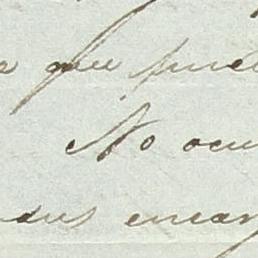 que pue
No ocu
sus encar